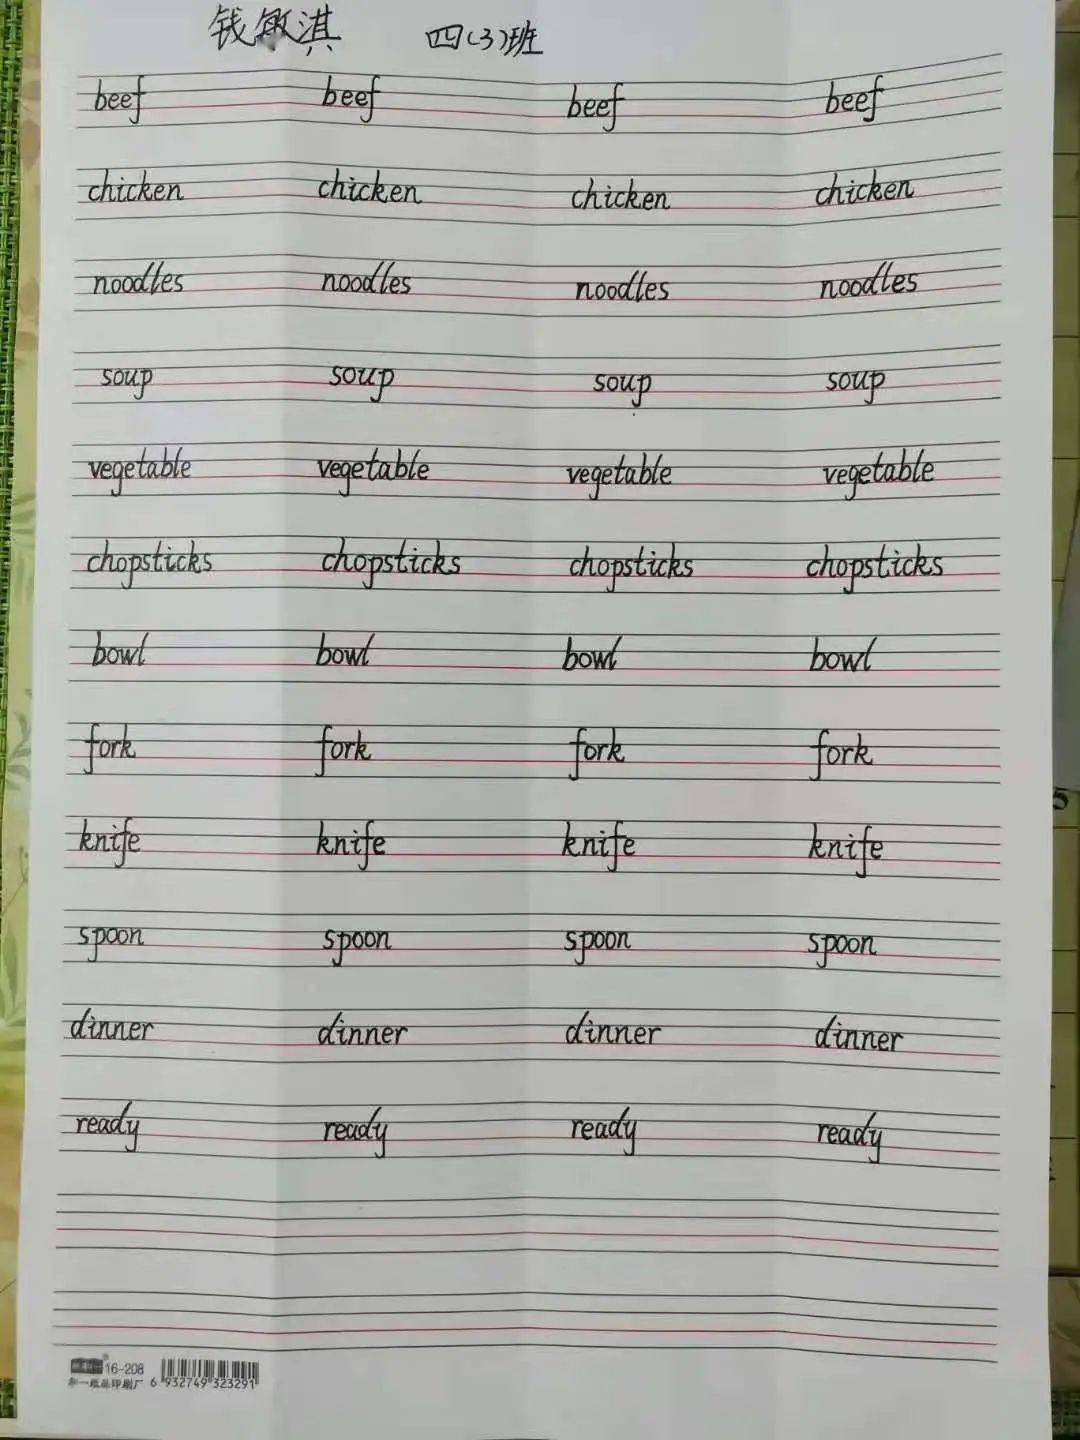 钱敏淇 四(3)班
beef beef beef beef
chicken chicken chicken chicken
noodles noodles noodles noodles
soup soup soup soup
vegetable vegetable vegetable vegetable
chopsticks chopsticks chopsticks chopsticks
bowl bowl bowl bowl
fork fork fork fork
knife knife knife knife
spoon spoon spoon spoon
dinner dinner dinner dinner
ready ready ready ready
16-208
6 932749 323291